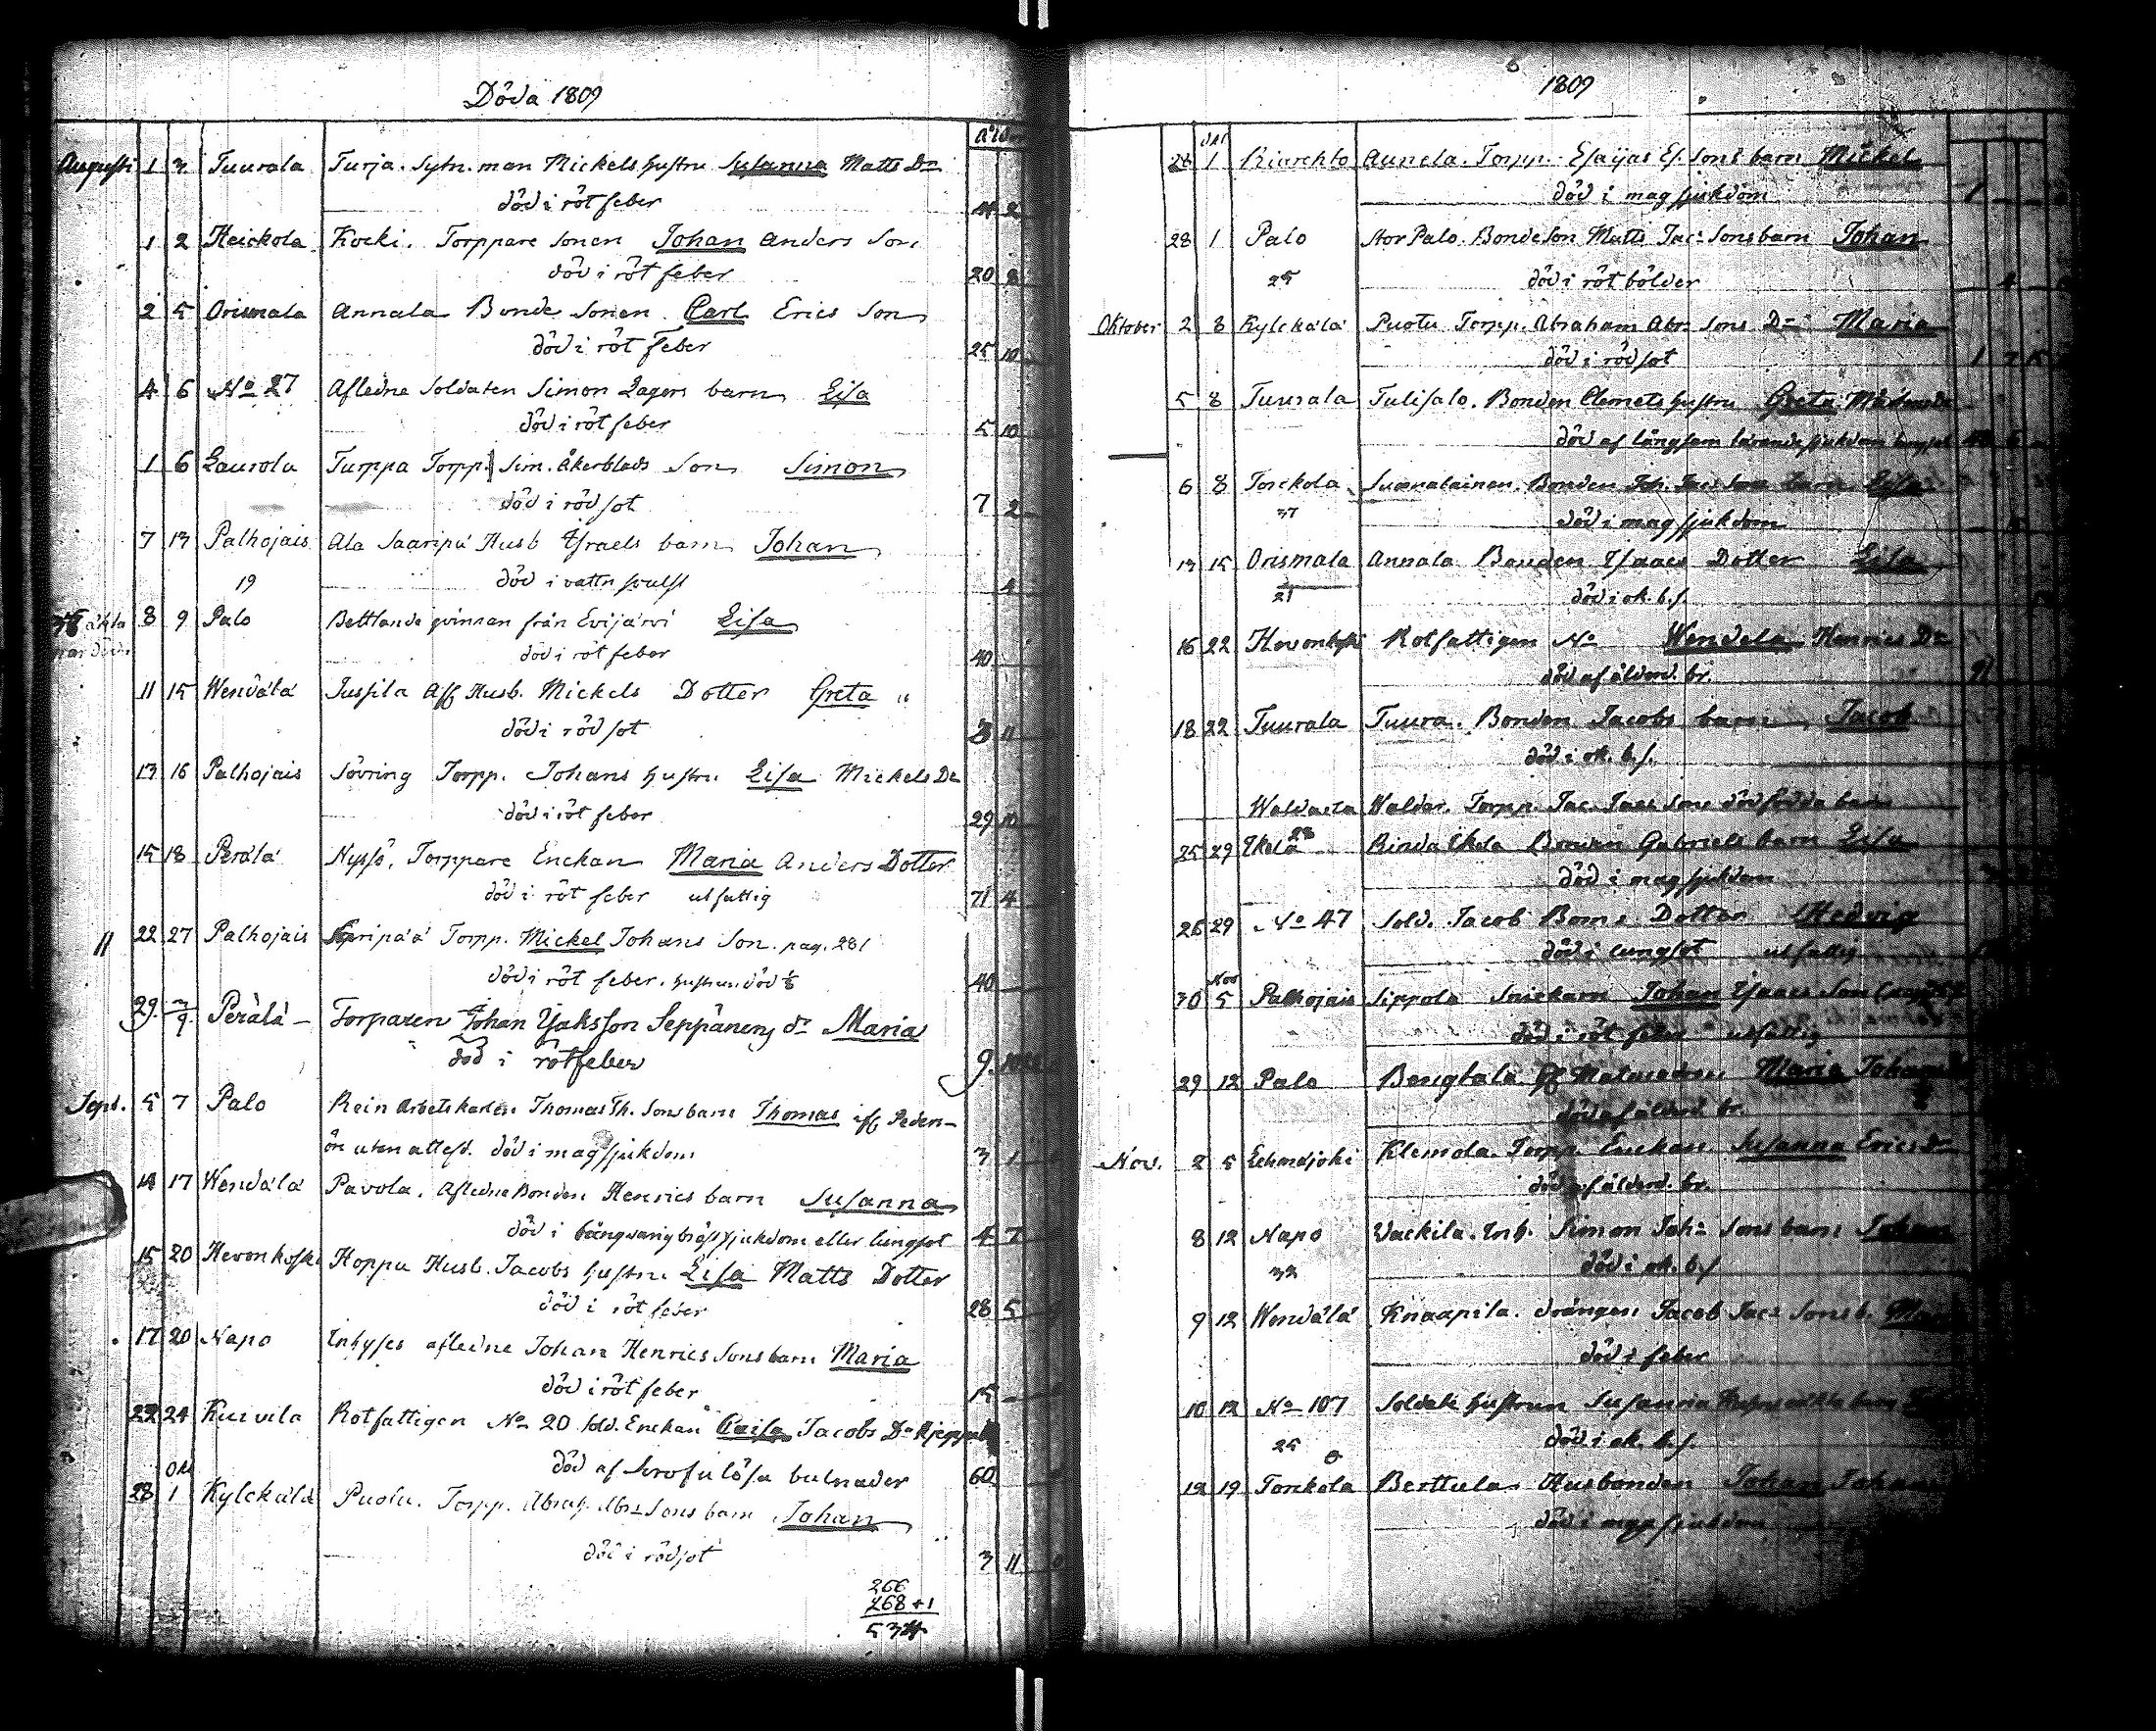 Döda 1809
Augusti 1 3 Tuurala Turja. Sytn. man Mickels hustru Susanna Matts Dr
död i röt feber 2
1 2 Heickola Kocki. Torppare sonen Johan Anders Son
död i röt feber 20 8
2 5 Orismala Annala Bonde Sonen Carl Erics Son
död i röt feber 25 10
4 6 No 27 Aflidne Soldaten Simon Lagers barn Lisa
död i röt feber 5 10
1 6 Laurola Turppa Torpp. Sim. Åkerblads Son Simon
död i rödsot 7 2
7 13 Palhojais Ala Saaripä Husb Israels barn Johan
19 död i vattn svulst
8 9 Palo Bettlande qvinnan från Evijärvi Lisa
död i röt feber 40
11 15 Wendälä Jussila Aff Husb. Mickels Dotter Greta
död i rödsot 3 11
13 16 Palhojais Sövring Torpp. Johans hustru Lisa Mickels Dr
död i röt feber 29 10
15 18 Perälä Nyssö. Torppare Enckan Maria Anders Dotter
död i röt feber utfattig 71 4
11 22 27 Palhojais Saripää Torpp. Mickel Johans Son. pag. 281
död i röt feber. hustrun död 40
29. 3/9. Perälä Torparen Johan Isaksson Seppänens dr Maria
död i rötfeber 9.
Sept. 5 7 Palo Rein Arbetskarlen Thomas Th. Sons barn Thomas iff Peders-
ön utan attest. död i magsjukdom 3 1
14 17 Wendälä Pavola. Aflidne Bonden Henrics barn Susanna
död i långvarig bröstsjukdom eller lungsot 4 7
15 20 Hevonkoski Hoppu Husb. Jacobs hustru Lisa Matts Dotter
död i röt feber 28 5
17 20 Napo Inhyses aflidne Johan Henrics Sons barn Maria
död i röt feber 15
22 24 Kuivila Rotfattigen No 20 Sold. Enckan Caisa Jacobs Dr
död af Scrofulösa bulnader 60
28 Okt 1 Kylckälä Puotu. Torpp. Abrah. Abr. Sons barn Johan
död i rödsot 3 11
266
268+1
534
1809
28 Okt 1 Kiurehto Aunela. Torpp. Esaijas Es. Sons barn Mickel
död i magsjukdom 1
28 1 Palo Stor Palo. Bonde Son Matts Jac. Sons barn Johan
25 död i röt bölder 4
Oktober 2 8 Kylckälä Puotu Torpp. Abraham Abr. Sons Dr Maria
död i rödsot 1 7 15
5 8 Tuurala Tulisalo. Bonden Clemets hustru Greta
död af långsam tärande sjukdom
6 8 Torckola Suomalainen. Bonden Joh. Jac. Sons barn Lisa
37 död i magsjukdom
13 15 Orismala Annala Bonden Isaacs Dotter Lisa
21 död i ok. b.s.
16 22 Hevonkoski Rotfattigen No Wendela Henrics Dr
död af ålderd. br.
18 22 Tuurala Tuura. Bonden Jacobs barn Jacob
död i ok. b.s.
Waldaita Waldar. Torpp. Jac. Jacs Sons dödfödda barn
25 29 Ikola 28 Rinda Ikola Bonden Gabriels barn Lisa
död i magsjukdom
26 29 No 47 Sold. Jacob Boms Dotter Hedvig
död i lungsot utfattig
30 Nov 5 Palhojais Sippola Snickaren Johan Isaacs Son
död i röt feber utfattig
29 12 Palo Bengtala Maria Johans
död af ålderd. br.
Nov. 2 5 Lehmäjoki Klemola. Torpp. Enckan. Susanna Erics dr
död af ålderd. br.
8 12 Napo Wackila. Inh. Simon Joh. Sons barn Johan
32 död i ok. b.s
9 12 Wendälä Knaapila. drängen Jacob Jac. Sons b.
död i feber
10 12 No 107 Soldats hustrun Susanna
25 död i ok. b.s.
12 19 Torckola Berttula Husbonden Johan
död i magsjukdom